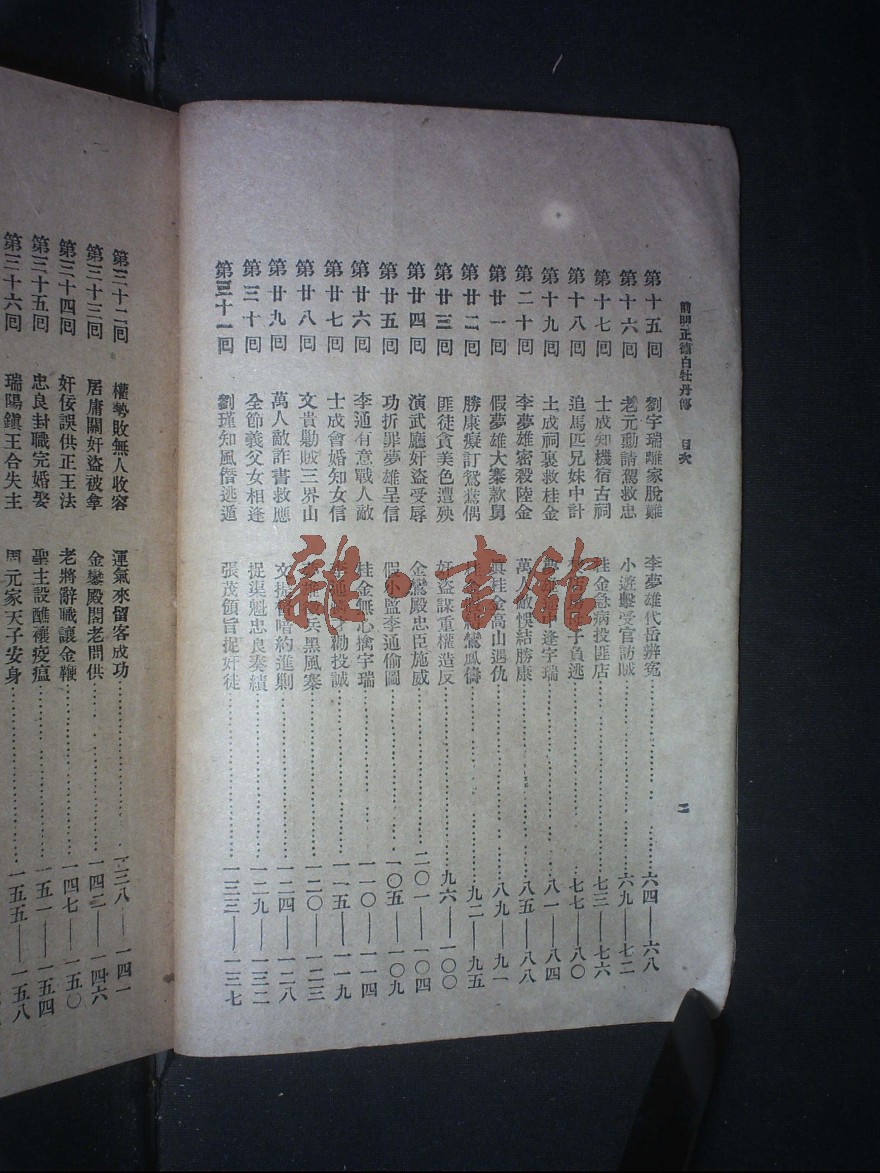 前明正德白牡丹傳 目次 二
第十五回 劉宇瑞離家脫難 李夢雄代岳辨冤 六四——六八
第十六回 老元勳請駕救忠 小遊擊受官訪賊 六九——七二
第十七回 士成知機宿古祠 桂金急病投匪店 七三——七六
第十八回 追馬匹兄妹中計 子負逃 七七——八〇
第十九回 土成祠裏救桂金 逢宇瑞 八一——八四
第二十回 李夢雄密殺陸金 萬人敵愧結勝康 八五——八八
第廿一回 假夢雄大寨款舅 真桂金高山遇仇 八九——九一
第廿二回 勝康癡訂鴛鴦偶 鸞鳳儔 九二——九五
第廿三回 匪徒貪美色遭殃 奸盜謀重權造反 九六——一〇〇
第廿四回 演武廳奸盜受辱 金鸞殿忠臣施威 二〇一——一〇四
第廿五回 功折罪夢雄呈信 假小監李通偷圖 一〇五——一〇九
第廿六回 李通有意戰人敵 桂金無心擒宇瑞 一一〇——一一四
第廿七回 士成會婚知女信 勸投誠 一一五——一一九
第廿八回 文貴勦賊三界山 兵黑風寨 一二〇——一二三
第廿九回 萬人敵詐書救應 文 暗約進剿 一二四——一二八
第三十回 全節義父女相逢 捉渠魁忠良奏績 一二九——一三二
第三十一回 劉瑾知風僭逃遁 張茂領旨捉奸徒 一三三——一三七
第三十二回 權勢敗無人收容 運氣來留客成功 一三八——一四一
第三十三回 居庸關奸盜被拿 金鑾殿閣老問供 一四二——一四六
第三十四回 奸佞誤供正王法 老將辭職讓金鞭 一四七——一五〇
第三十五回 忠良封職完婚娶 聖主設醮禳疫瘟 一五一——一五四
第三十六回 瑞陽鎮王合失主 周元家天子安身 一五五——一五八
雜·書館